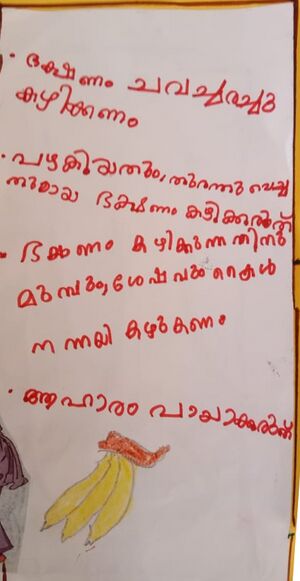 • ഭക്ഷണം ചവച്ചരച്ചു
കഴിക്കണം
• പഴകിയതും, തുറന്നു വെച്ച
തുമായ ഭക്ഷണം കഴിക്കരുത്
• ഭക്ഷണം കഴിക്കുന്നതിനു
മുമ്പും, ശേഷവും കൈകൾ
നന്നായി കഴുകണം
• ആഹാരം പാഴാക്കരുത്